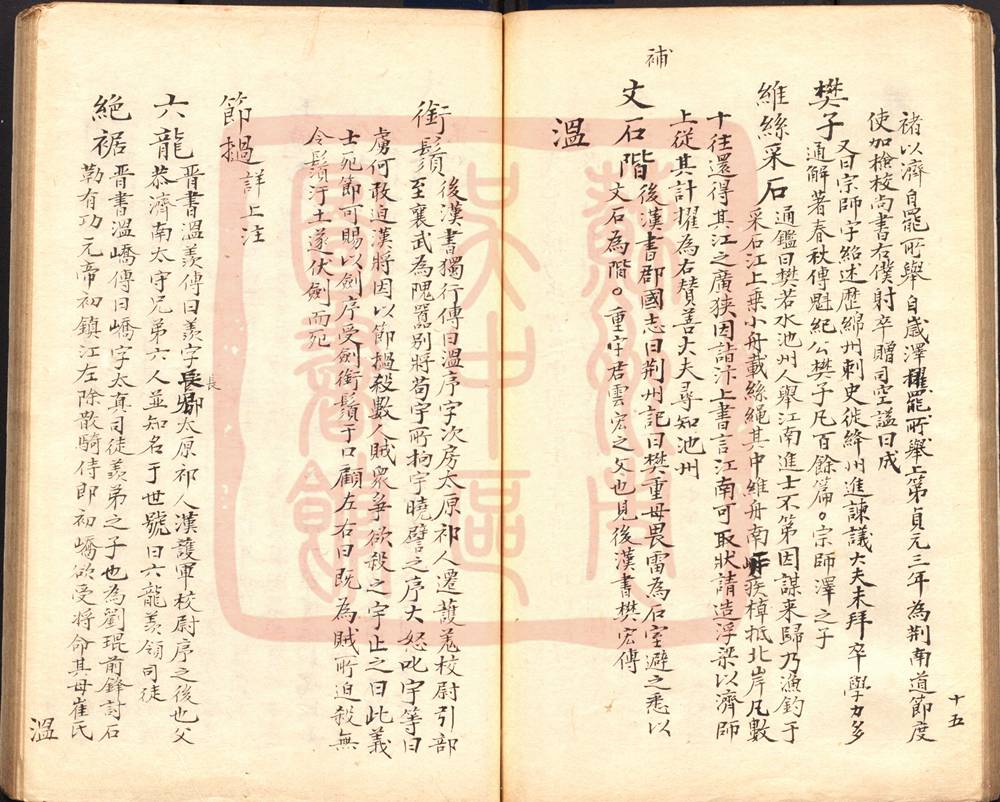 褚以濟自罷所舉自歲澤擢罷所舉上第貞元三年為荆南道節度
使加檢校尚書右僕射卒贈司空諡曰成
樊子又曰宗師字紹述歷綿州刺史徙絳州進諫議大夫未拜卒學力多
通解著春秋傳魁紀公樊子凡百餘篇。宗師澤之子
維絲采石通鑑曰樊若水池州人舉江南進士不第因謀来歸乃漁釣于
采石江上乗小舟載絲繩其中維舟南岸疾棹抵北岸凡數
十往還得其江之廣狹因詣汴上書言江南可取狀請造浮梁以濟師
上從其計擢為右賛善大夫尋知池州
補
文石階後漢書郡國志曰荆州記曰樊重母畏雷為石室避之悉以
文石為階。重字君雲宏之父也見後漢書樊宏傳
溫
十五
銜鬚後漢書獨行傳曰溫序字次房太原祁人遷護羌校尉引部
至襄武為隗囂别將苟宇所拘宇曉譬之序大怒叱宇等曰
虜何敢迫漢將因以節撾殺數人賊衆爭欲殺之宇止之曰此義
士死節可賜以劍序受劍銜鬚于口顧左右曰既為賊所迫殺無
令鬚汙土遂伏劍而死
節撾詳上注
六龍晋書溫羨傳曰羨字長卿太原祁人漢護軍校尉序之後也父
長
恭濟南太守兄弟六人並知名于世號曰六龍羨領司徒
絶裾晋書溫嶠傳曰嶠字太真司徒羨弟之子也為劉琨前鋒討石
勒有功元帝初鎮江左除散騎侍郎初嶠欲受将命其母崔氏
溫